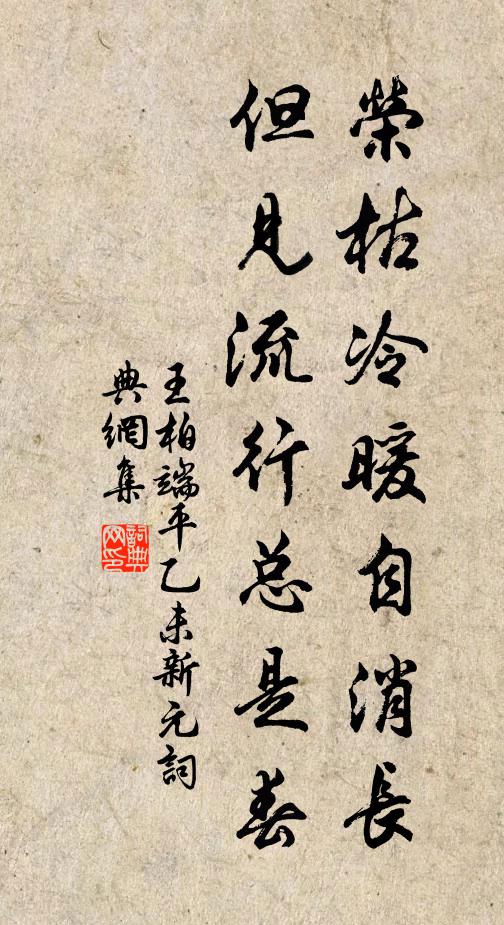 榮枯冷暖自消長
但見流行总是春
王柏端平乙未新元詞
典網集
詞典網印